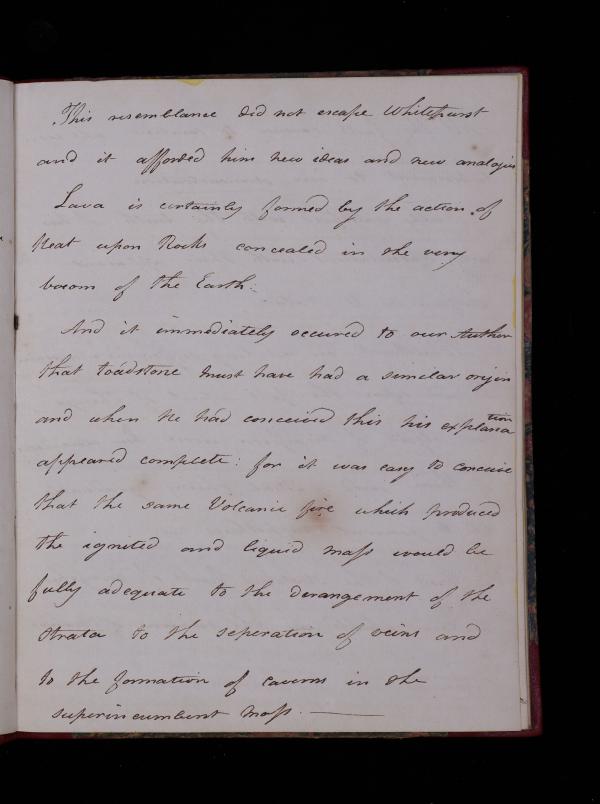 This resemblance did not escape Whitehurst
and it afforded him new ideas and new analogies
Lava is certainly formed by the action of
Heat upon Rocks concealed in the very
bosom of the Earth:
And it immediately occured to our Author
that toadstone must have had a similar origin
and when he had conceived this his explanation
appeared complete: for it was easy to conceive
that the same Volcanic fire which produced
the ignited and liquid mass would be
fully adequate to the derangement of the
strata to the seperation of veins and
to the formation of caverns in the
superincumbent mass. —